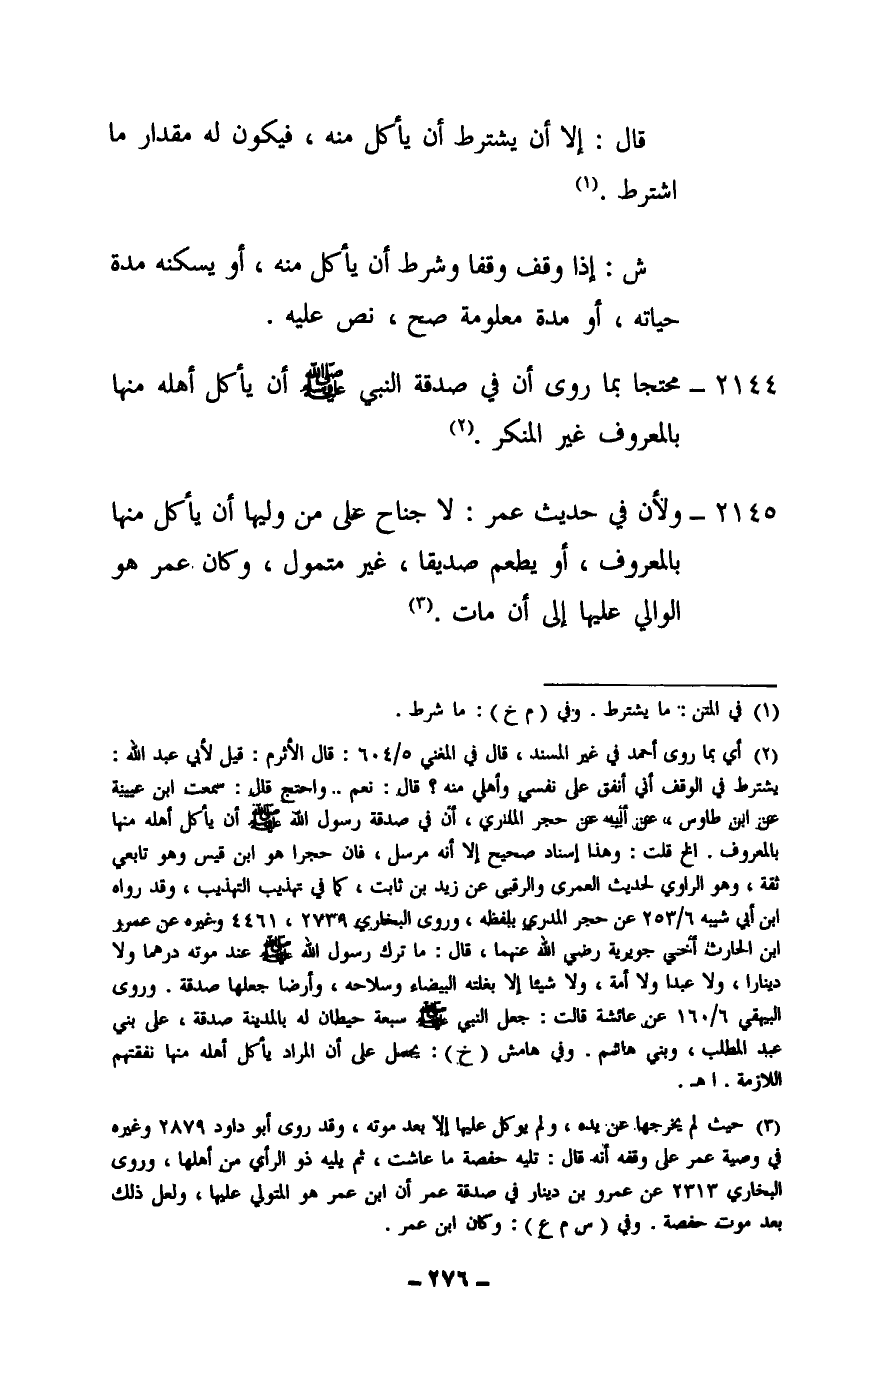 قال : إلا أن يشترط أن يأكل منه ، فيكون له مقدار ما
اشترط .(١)
ش : إذا وقف وقفا وشرط أن يأكل منه ، أو يسكنه مدة
حياته ، أو مدة معلومة صح ، نص عليه .
٢١٤٤ ـ محتجا بما روى أن في صدقة النبي ﷺ أن يأكل أهله منها
بالمعروف غير المنكر .(٢)
٢١٤٥ ـ ولأن في حديث عمر : لا جناح على من وليها أن يأكل منها
بالمعروف ، أو يطعم صديقا ، غير متمول ، وكان عمر هو
الوالي عليها إلى أن مات .(٣)
(١) في المتن : ما يشترط . وفي ( م خ ) : ما شرط .
(٢) أي بما روى أحمد في غير المسند ، قال في المغني ٦٠٤/٥ : قال الأثرم : قيل لأبي عبد الله :
يشترط في الوقف أني أنفق على نفسي وأهلي منه ؟ قال : نعم .. واحتج قال : سمعت ابن عيينة
عن ابن طاوس ، عن أبيه عن حجر المدري ، أن في صدقة رسول الله ﷺ أن يأكل أهله منها
بالمعروف . الخ قلت : وهذا إسناد صحيح إلا أنه مرسل ، فان حجرا هو ابن قيس وهو تابعي
ثقة ، وهو الراوي لحديث العمرى والرقبى عن زيد بن ثابت ، كما في تهذيب التهذيب ، وقد رواه
ابن أبي شيبه ٢٥٣/٦ عن حجر المدري بلفظه ، وروى البخاري ٢٧٣٩ ، ٤٤٦١ وغيره عن عمرو
ابن الحارث أخي جويرية رضي الله عنهما ، قال : ما ترك رسول الله ﷺ عند موته درهما ولا
دينارا ، ولا عبدا ولا أمة ، ولا شيئا إلا بغلته البيضاء وسلاحه ، وأرضا جعلها صدقة . وروى
البيهقي ١٦٠/٦ عن عائشة قالت : جعل النبي ﷺ سبعة حيطان له بالمدينة صدقة ، على بني
عبد المطلب ، وبني هاشم . وفي هامش ( خ ) : يحصل على أن المراد يأكل أهله منها نفقتهم
اللازمة . ا هـ .
(٣) حيث لم يخرجها عن يده ، ولم يوكل عليها إلا بعد موته ، وقد روى أبو داود ٢٨٧٩ وغيره
في وصية عمر على وقفه أنه قال : تليه حفصة ما عاشت ، ثم يليه ذو الرأي من أهلها ، وروى
البخاري ٢٣١٣ عن عمرو بن دينار في صدقة عمر أن ابن عمر هو المتولي عليها ، ولعل ذلك
بعد موت حفصة . وفي ( س م ع ) : وكان ابن عمر .
ـ ٢٧٦ ـ